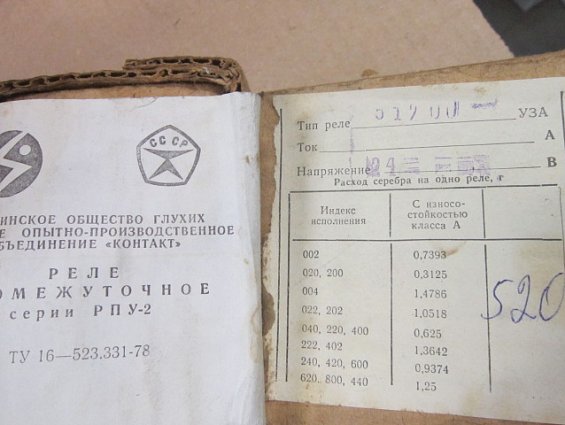 СССР
ИНСКОЕ ОБЩЕСТВО ГЛУХИХ
Е ОПЫТНО-ПРОИЗВОДСТВЕННОЕ
БЪЕДИНЕНИЕ «КОНТАКТ»
РЕЛЕ
ОМЕЖУТОЧНОЕ
серии РПУ-2
ТУ 16—523.331-78
Тип реле 51200 УЗА
Ток А
Напряжение 24 В
Расход серебра на одно реле, г
Индекс исполнения С износостойкостью класса А
002 0,7393
020, 200 0,3125
004 1,4786
022, 202 1,0518
040, 220, 400 0,625
222, 402 1,3642
240, 420, 600 0,9374
620, 800, 440 1,25
520